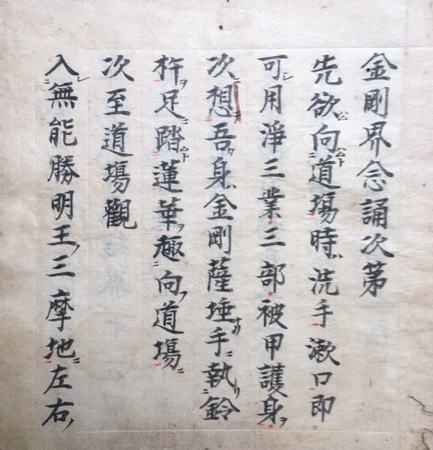 金剛界念誦次第
先欲向道場時洗手漱口即
可用淨三業三部被甲護身
次想吾身金剛薩埵手執鈴
杵足踏蓮華趣向道場
次至道場觀
入無能勝明王三摩地左右